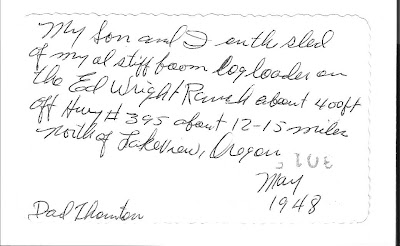 My Son and I on the sled
of my al stiff boom log loader on
the Ed Wright Ranch about 400 ft
off Hwy # 395 about 12-15 miles
North of Lakeview, Oregon
301
May
1948
Dad Thornton